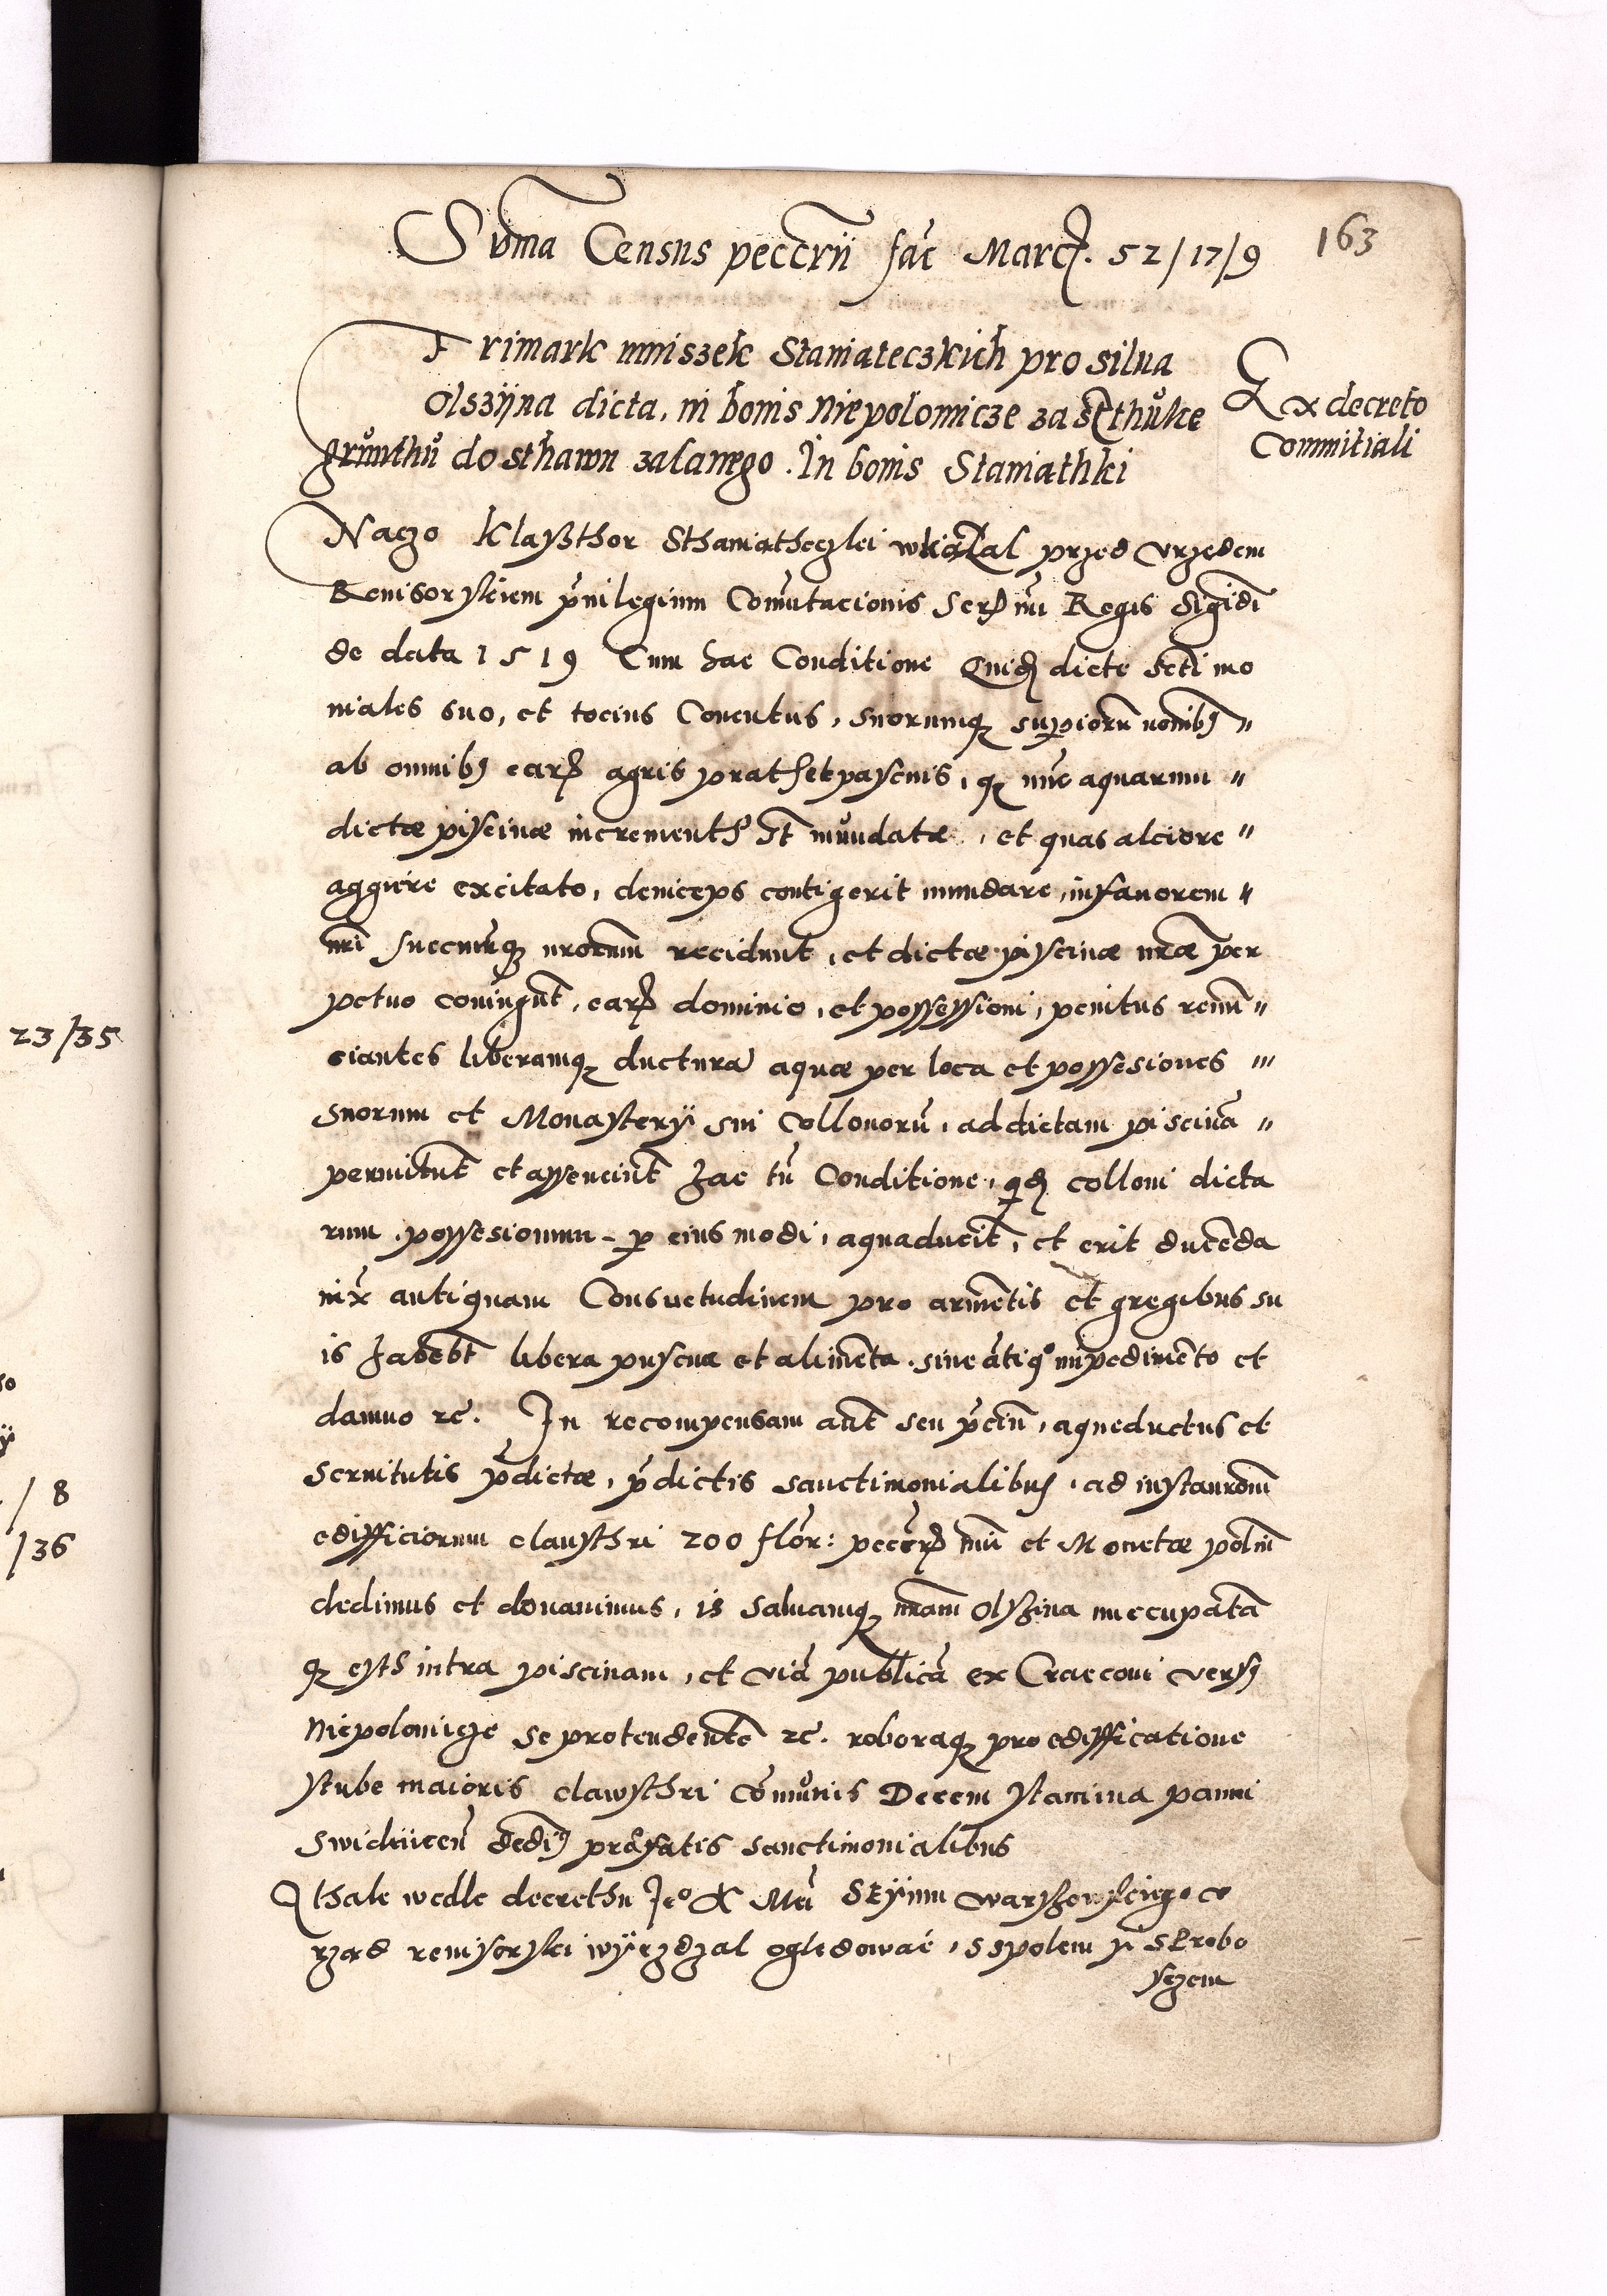 163
Suma̅ Census peccrii fac̄ Marcɉ. 52/17/9
Frimark mniszek Staniateczkich pro silua
Olszijna dicta, in bonis Niepolomicze za scthuke
grunthu do sthawu zalanego. In bonis Staniathki
Ex decreto
Commitiali
Naczo Klaszthor Sthaniatheczki wkazal przed vrzedem
Reuisorskiem pruilegium Comutacionis Ser nri Regis Sigidi
de data 1519 Cum hac Conditione Quidē dicte Scti mo
niales suo, et tocius Conentus, suorumqꝫ supiorū nomibꝫ "
ab omnibꝫ earꝝ agris prathet pascuis, qꝫ nūc aquarum "
dictæ piscinæ incrementh sūt inundatæ, et quas alciore "
aggiere excitato, deniceps contigerit inundare, in fauorem "
nri Succnrqꝫ nrorum recidunt, et dictæ piscinæ nræ per
petuo coniugūt, earꝝ dominio, et possessioni, penitus renū "
ciantes liberamqꝫ ducturā aquæ per loca et possesiones "'
suorum et Monasterÿ sui Collonorū, ad dictam piscinā "
permitūt et assenciūt hac tn̄ Conditione, qd colloni dicta
rum possesionum - ꝑ eius modi, aquaducit, et erit ducēda
iux̄ antiquam Consuetudinem pro armētis et gregibus su
is habebt libera puscua et alimēta, sine antiqº impedimēto et
damno ꝛc. In recompensam aut seu p̄ciū, aqueductus et
Seruitutis p̄dictæ, p̄dictis sanctimonialibus, ad instaurōm
edifficiorum claustri 200 flor: peccrꝝ nri et Monetæ polni
dedimus et donauimus, is Saluamqꝫ nram Olszina nucupatā
qꝫ esth intra piscinam, et viā publicā ex Craecoui versꝫ
Niepolomicze se protendentē ꝛc. roboraqꝫ pro edifficatione
stube maioris clawsthri cōmunis Decem stamina panni
swidnicen̄ dedi præfatis sanctimonialibus
Ithale wedle decrethu Jeº K Mći Seÿmu Warszowskiego v
rzad remisorski wÿezdzal ogledowac, sspolem ÿ SProbo
sczem
23/35
/ 8
/36